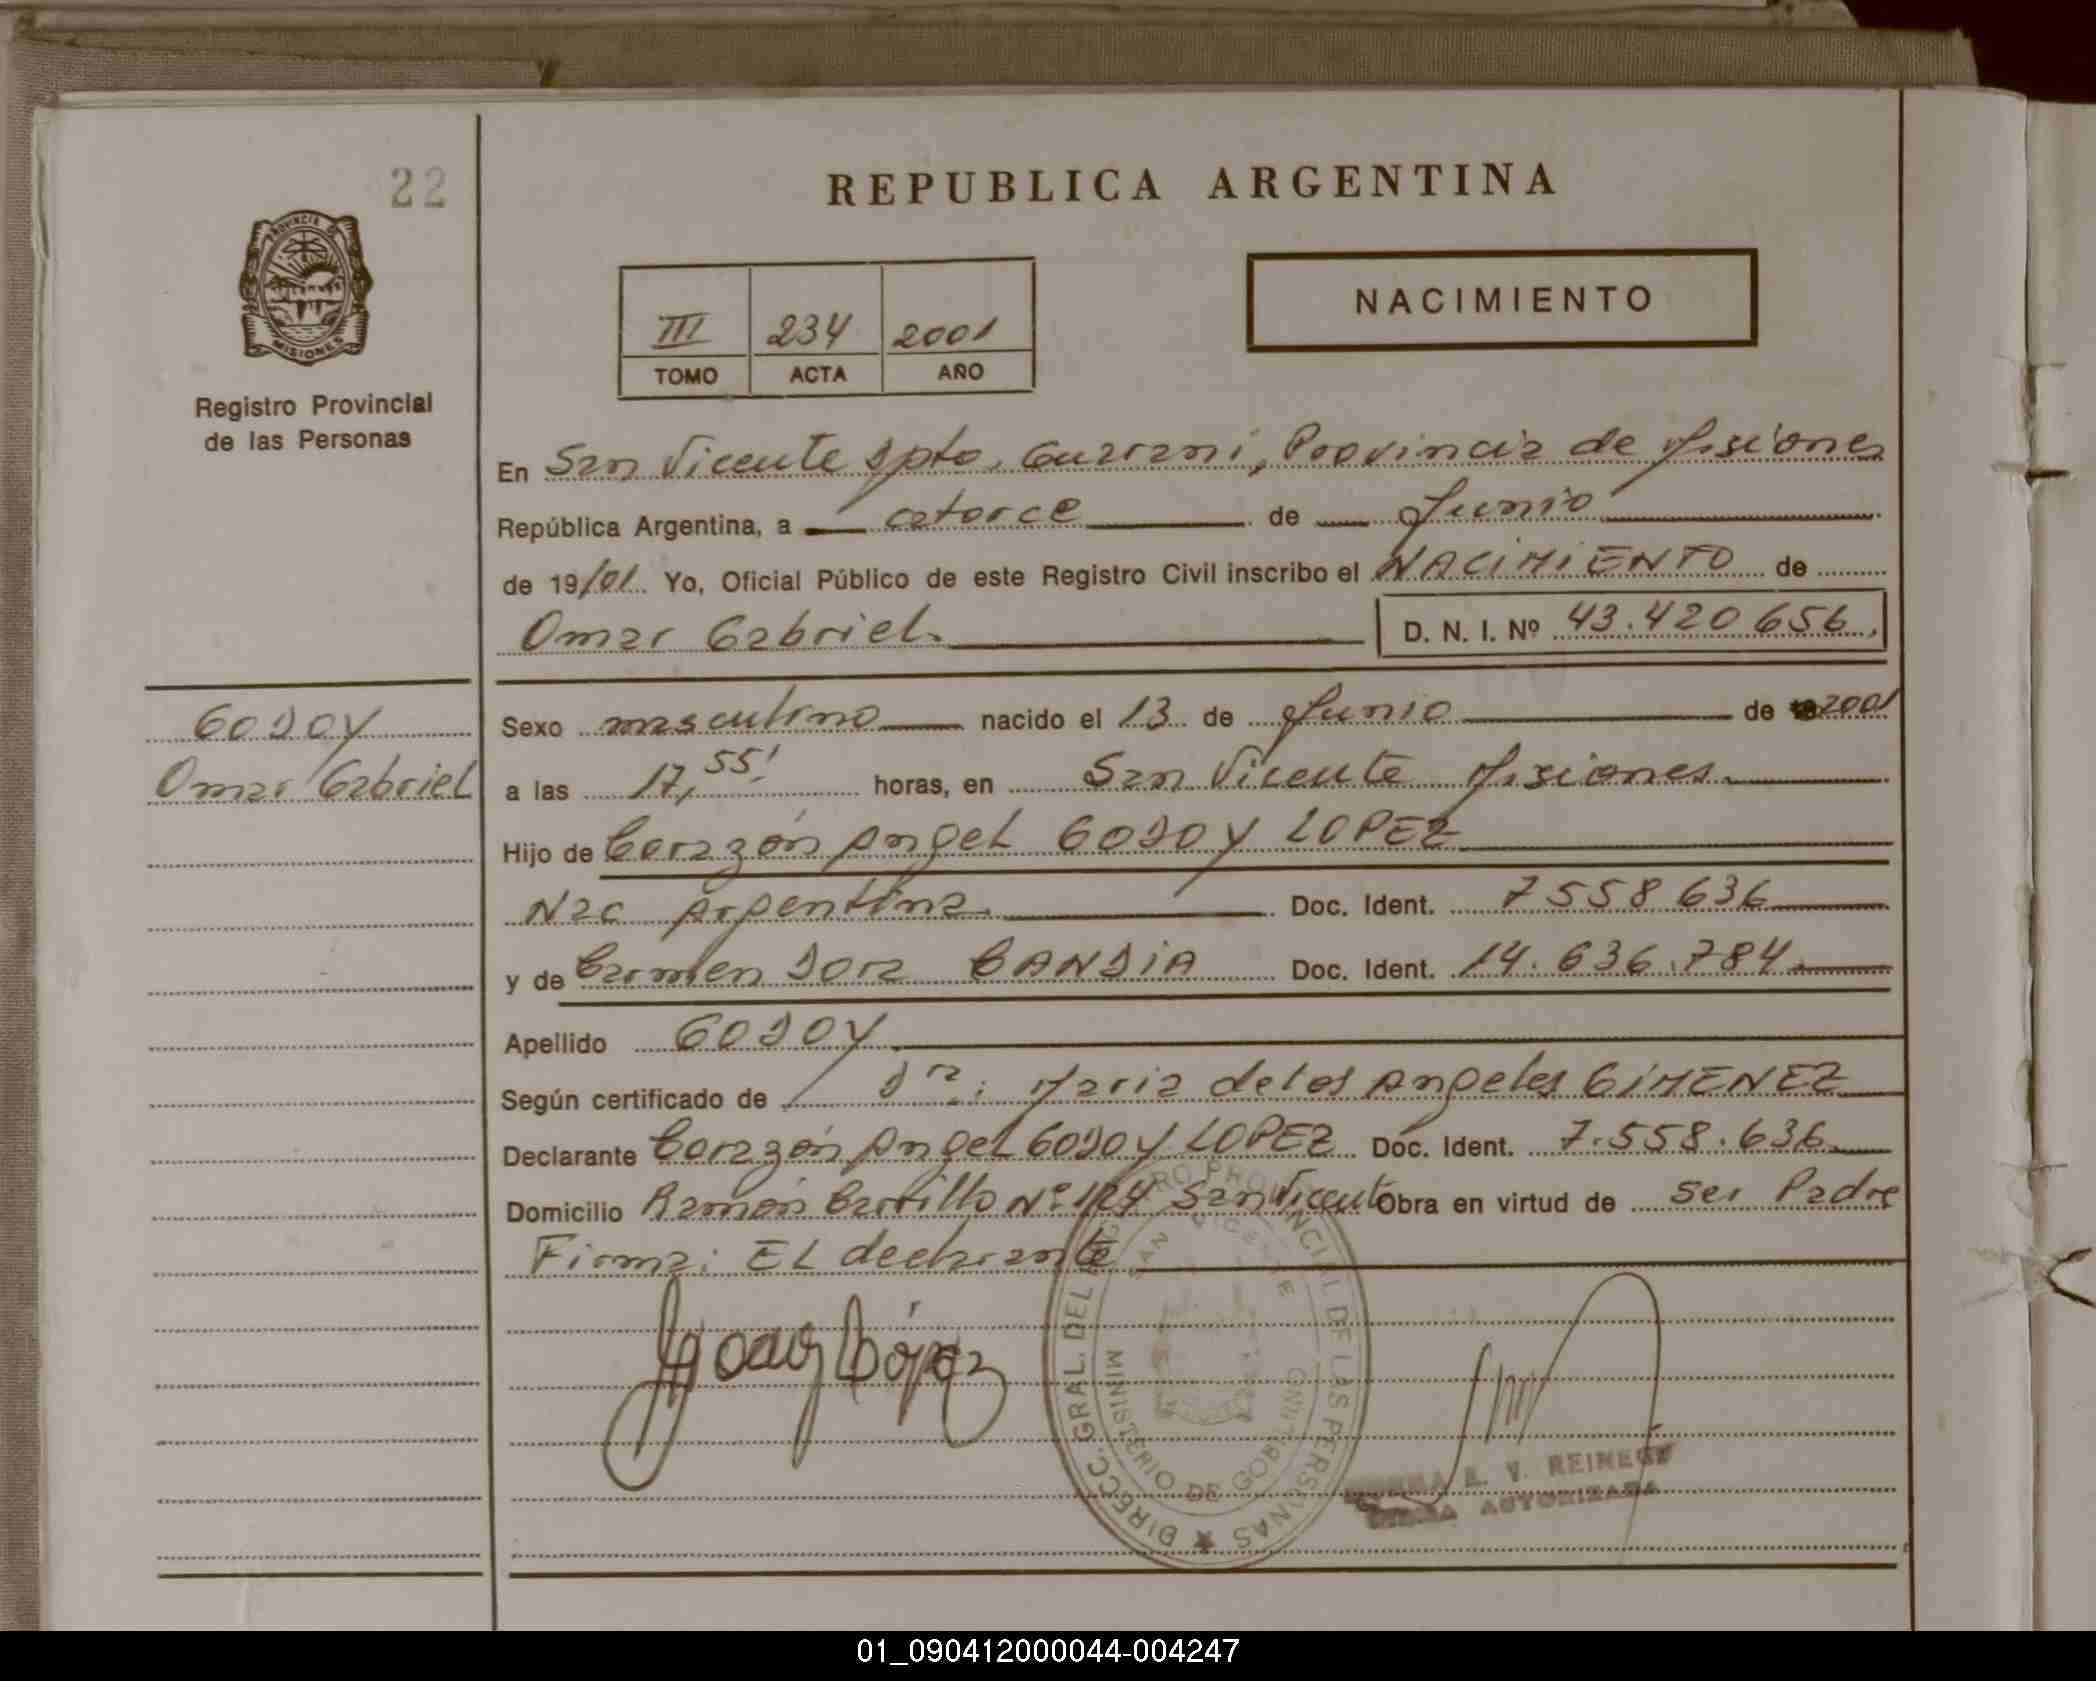 22
REPUBLICA ARGENTINA
PROVINCIA DE
MISIONES
Registro Provincial
de las Personas
III 234 2001
TOMO ACTA AÑO
NACIMIENTO
En San Vicente Dpto. Guarani, Provincia de Misiones
República Argentina, a catorce de Junio
de 19/01 Yo, Oficial Público de este Registro Civil inscribo el NACIMIENTO de
Omar Gabriel. D. N. I. Nº 43.420656.
GODOY
Omar Gabriel
Sexo masculino nacido el 13 de Junio de 2001
a las 17,55' horas, en San Vicente Misiones.
Hijo de Corazón Angel GODOY LOPEZ
Nac Argentina. Doc. Ident. 7558636
y de Carmen Dora CANDIA Doc. Ident. 14.636.784.
Apellido GODOY.
Según certificado de Dra: Maria de los Angeles GIMENEZ
Declarante Corazón Angel GODOY LOPEZ Doc. Ident. 7.558.636
Domicilio Ramón Carrillo Nº 124 San Vicente Obra en virtud de ser Padre
Firma: EL declarante
Godoy López
DIRECC. GRAL. DEL REGISTRO PROVINCIAL DE LAS PERSONAS
SAN VICENTE
MINISTERIO DE GOBIERNO
E. V. REINECK
FIRMA AUTORIZADA
01_090412000044-004247